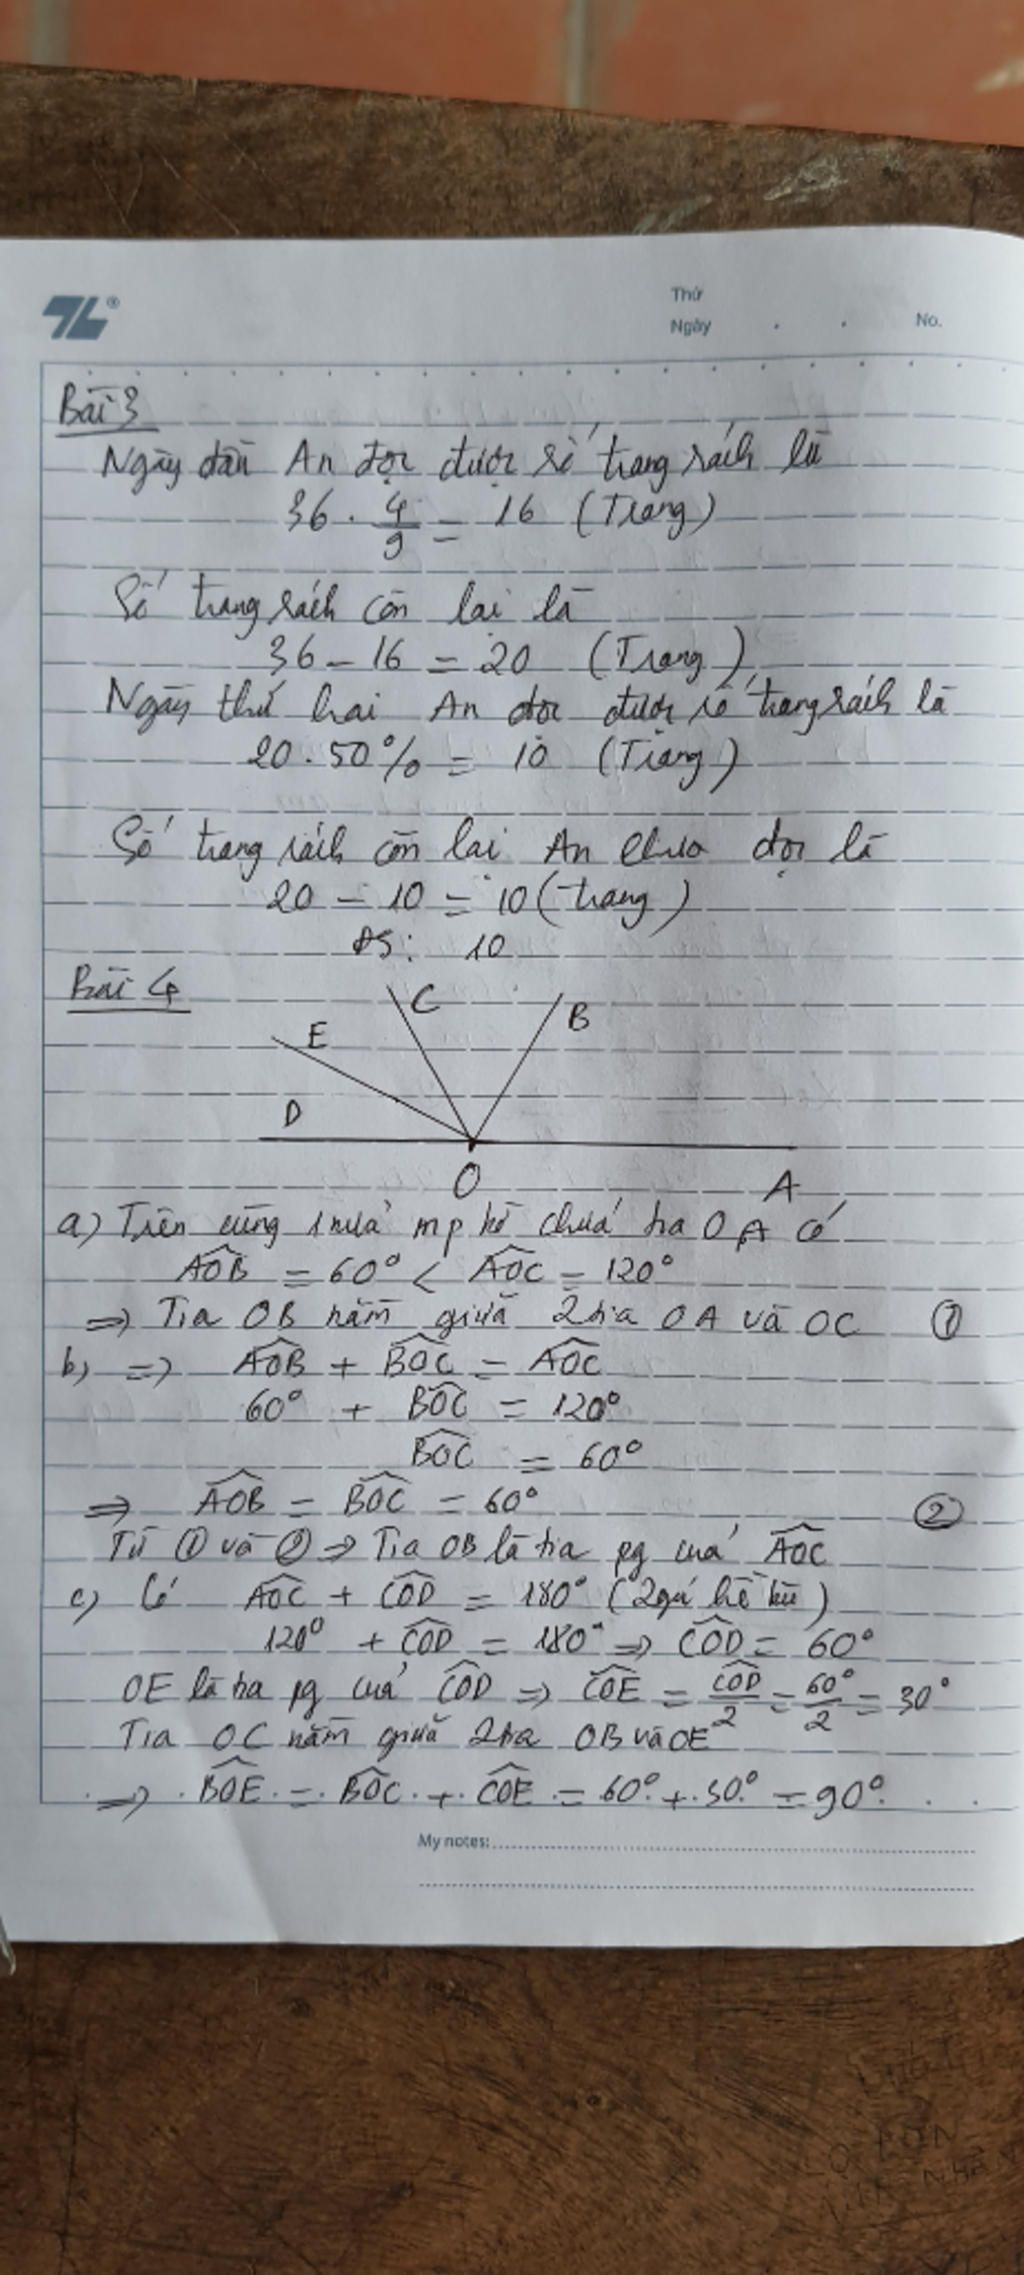 TL®
Thứ
Ngày . . No.
Bài 3
Ngày đầu An đọc được số trang sách là
36 . 4/9 = 16 (Trang)
Số trang sách còn lại là
36 - 16 = 20 (Trang)
Ngày thứ hai An đọc được số trang sách là
20 . 50% = 10 (Trang)
Số trang sách còn lại An chưa đọc là
20 - 10 = 10 (trang)
ĐS: 10
Bài 4
C
B
E
D
O
A
a) Trên cùng 1 nửa mp bờ chứa tia OA có
AOB = 60° < AOC = 120°
=> Tia OB nằm giữa 2 tia OA và OC ①
b) => AOB + BOC = AOC
60° + BOC = 120°
BOC = 60°
=> AOB = BOC = 60° ②
Từ ① và ② => Tia OB là tia pg của AOC
c) Có AOC + COD = 180° (2 góc kề bù)
120° + COD = 180° => COD = 60°
OE là tia pg của COD => COE = COD/2 = 60°/2 = 30°
Tia OC nằm giữa 2 tia OB và OE
=> BOE = BOC + COE = 60° + 30° = 90°
My notes: